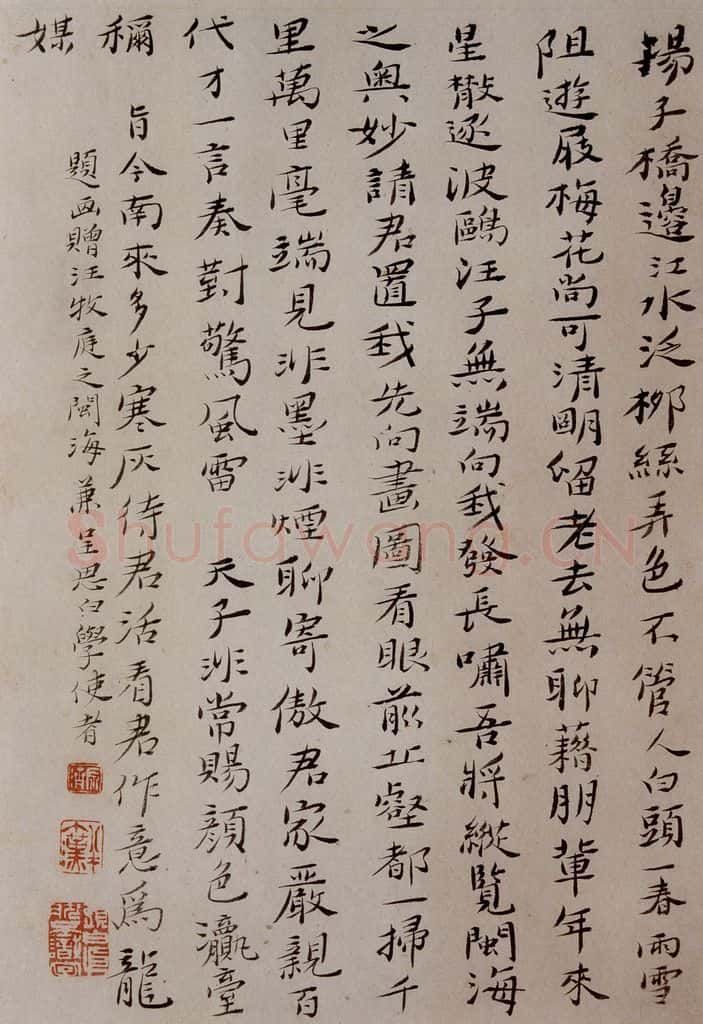 鍚子橋邊江水泛柳絲弄色不管人白頭一春雨雪
阻遊屐梅花尚可清明留老去無聊藉朋輩年來
星散逐波鷗汪子無端向我發長嘯吾將縱覽閩海
之奧妙請君置我先向畫圖看眼前丘壑都一掃千
里萬里毫端見非墨非煙聊寄傲君家嚴親百
代才一言奏對驚風雷 天子非常賜顏色瀛臺
稱
旨今南來多少寒灰待君活看君作意為龍
媒
題画贈汪牧庭之閩海兼呈思白學使者
Shufawang.CN